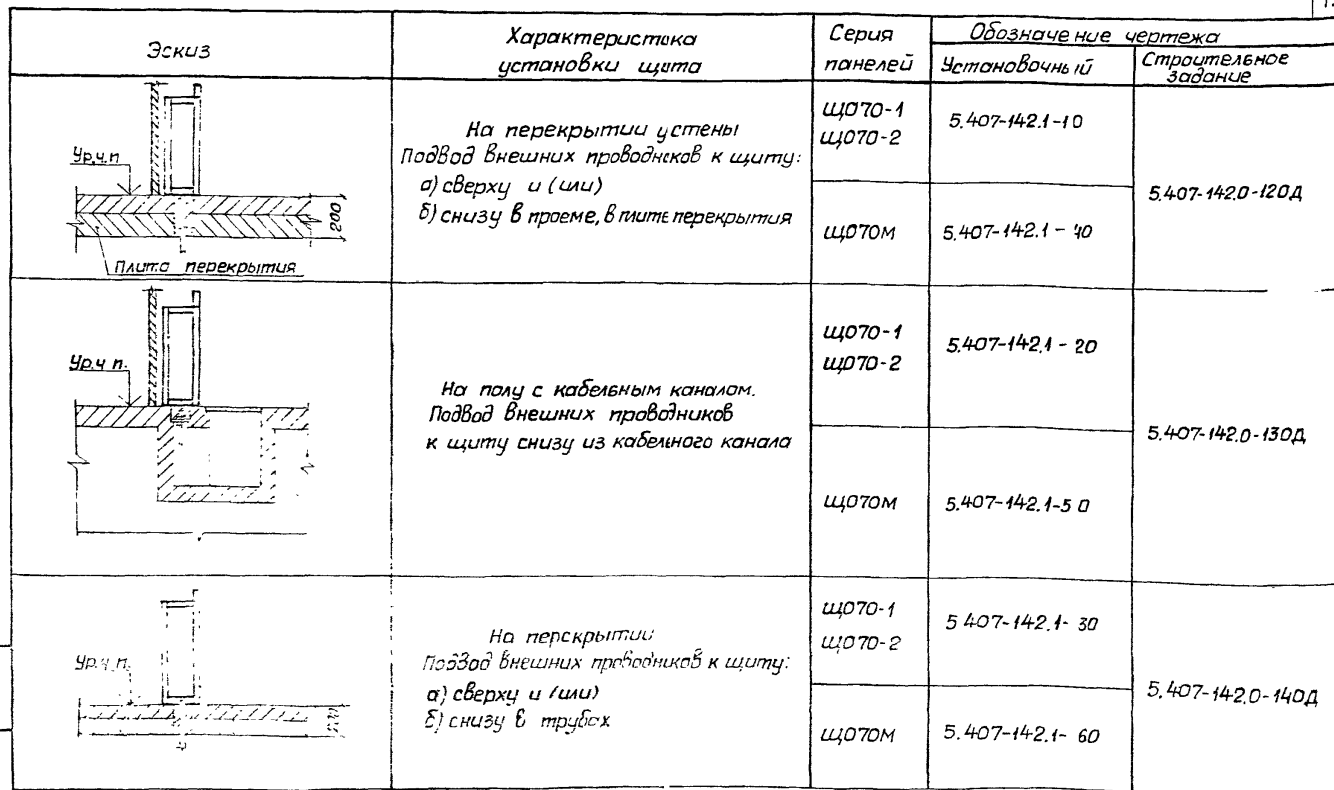 Эскиз
Характеристика
установки щита
Серия
панелей
Обозначение чертежа
Установочный
Строительное
задание
Ур.ч.п
200
Плита перекрытия
На перекрытии у стены
Подвод внешних проводников к щиту:
а) сверху и (или)
б) снизу в проеме, в плите перекрытия
ЩО70-1
ЩО70-2
5.407-142.1-10
ЩО70М
5.407-142.1-40
5.407-142.0-120Д
Ур.ч п.
На полу с кабельным каналом.
Подвод внешних проводников
к щиту снизу из кабельного канала
ЩО70-1
ЩО70-2
5.407-142.1-20
ЩО70М
5.407-142.1-50
5.407-142.0-130Д
Ур.ч.п.
На перекрытии
Подвод внешних проводников к щиту:
а) сверху и (или)
б) снизу в трубах
ЩО70-1
ЩО70-2
5 407-142.1-30
ЩО70М
5.407-142.1-60
5.407-142.0-140Д